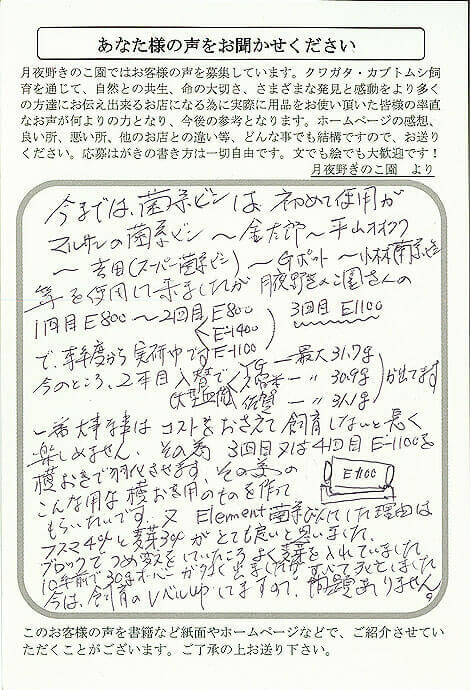 あなた様の声をお聞かせください
月夜野きのこ園ではお客様の声を募集しています。クワガタ・カブトムシ飼
育を通じて、自然との共生、命の大切さ、さまざまな発見と感動をより多く
の方達にお伝え出来るお店になる為に実際に用品をお使い頂いた皆様の率直
なお声が何よりの力となり、今後の参考となります。ホームページの感想、
良い所、悪い所、他のお店との違い等、どんな事でも結構ですので、お送り
ください。応募はがきの書き方は一切自由です。文でも絵でも大歓迎です！
月夜野きのこ園 より
今までは、菌糸ビンは、初めて使用が
マルサンの菌糸ビン～金太郎～平山オオクワ
～吉田(スーパー菌糸ビン)～Gポット～小林菌糸ビン
等を使用して来ましたが月夜野きのこ園さんの
1回目E-800～2回目E-800 3回目E-1100
E-1400
E-1100
で、本年度から実研中です
今のところ、2年目入替で
大型血統 YG―最大31.7g
久留米―〃30.9g が出てます
佐賀―〃31.1g
一番大事な事はコストをおさえて飼育しないと長く
楽しめません。その為 3回目又は4回目E-1100を
横おきで羽化させます。その為の
こんな用な横おき用のものを作って
E1100
もらいたいです。又Element菌糸ビンにした理由は
フスマ4%と麦芽3%がとても良いと思いました。
ブロックでつめ変えをしていたころよく麦芽を入れていました
10年前で30gオーバーが多く出ましたが、すべて死にました
今は、飼育のレベルupしてますので、問題ありません。
このお客様の声を書籍など紙面やホームページなどで、ご紹介させてい
ただくことがございます。ご了承の上お送り下さい。